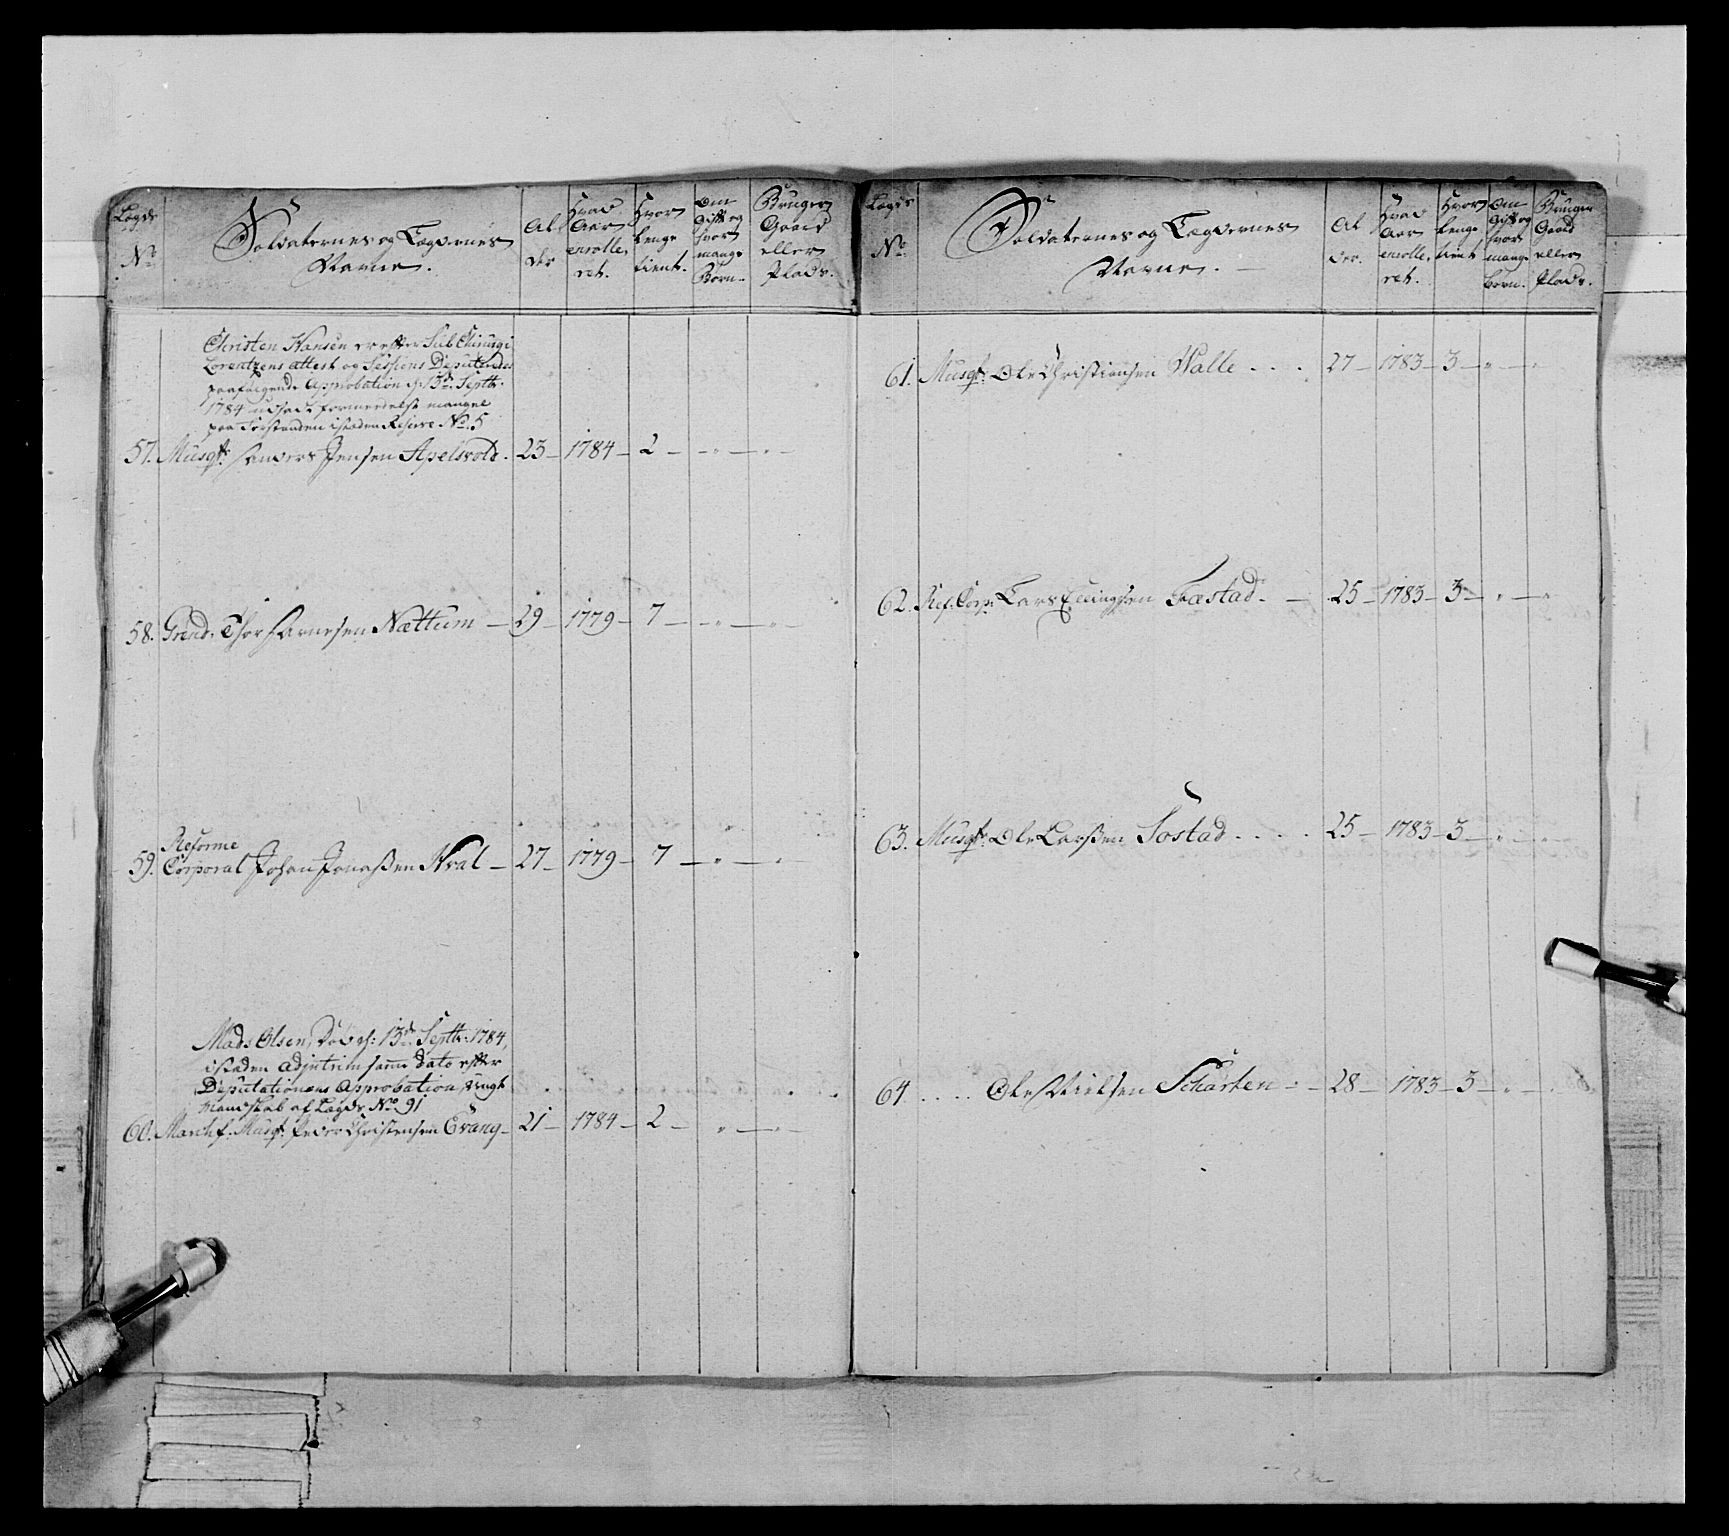 Lægds No
Soldaternes og Lægdernes Navne.
Al der
Hvad Aar enrolleret.
Hvor lenge tient.
Om Gift og hvor mange Børn.
Bruger Gaard eller Plads.
Christen Hansen er efter Sub Chirurgi
Lorentzens attest og Sessions Deputeredes
paafølgende Approbation d: 13de Septbr:
1784 udsadt formedelst mangel
paa Forstanden istæden Reserve No. 5
57. Musqt: Anders Jensen Apelsvold. 23 – 1784 – 2 – " – " –
58. Grend: Thor Arnesen Nættum – 29 – 1779 – 7 – " – " –
Reforme
59. Corporal Johan Jonassen Hval – 27 – 1779 – 7 – " – " –
Mads Olsen, død d: 13de Septbr: 1784,
istæden adjutrim samme dato efter
Deputationens Approbation, ungt
Mandskab af Lægds No. 91
60. Musqt: Peder Christensen Evang – 21 – 1784 – 2 – " – " –
Lægds No
Soldaternes og Lægdernes Navne. –
Al der.
Hvad Aar enrolleret.
Hvor lenge tient
Om Gift og hvor mange børn.
Bruger Gaard eller Plads.
61. Musqt: Ole Christiansen Walle . . . . 27 – 1783 – 3 – " – " –
62. Ref: Corp: Lars Ellingsen Fæstad. – 25 – 1783 – 3 – " – "
63. Musqt: Ole Larssen Sostad . . . . 25 – 1783 – 3 – " – " –
64 . . . . Ole Nielsen Scharten – – 28 – 1783 – 3 – " – "